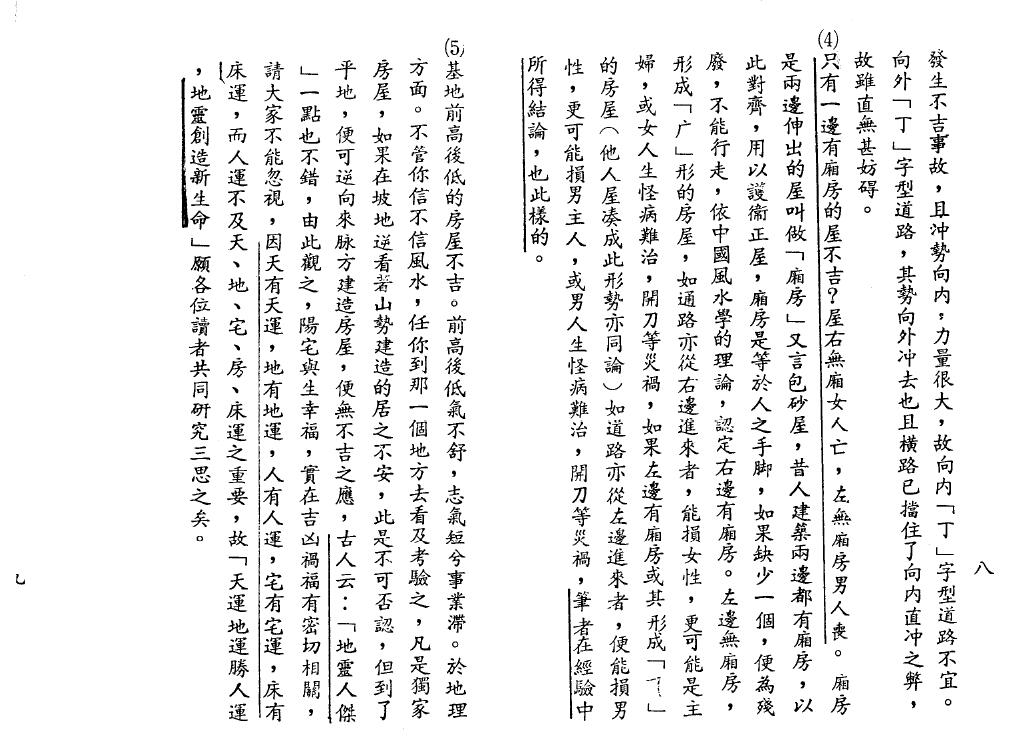 發生不吉事故，且冲勢向內，力量很大，故向內「丁」字型道路不宜。
向外「丁」字型道路，其勢向外冲去也且橫路已擋住了向內直冲之弊，
故雖直無甚妨碍。
⑷只有一邊有廂房的屋不吉？屋右無廂女人亡，左無廂房男人喪。廂房
是兩邊伸出的屋叫做「廂房」又言包砂屋，昔人建築兩邊都有廂房，以
此對齊，用以護衞正屋，廂房是等於人之手脚，如果缺少一個，便為殘
廢，不能行走，依中國風水學的理論，認定右邊有廂房。左邊無廂房，
形成「广」形的房屋，如通路亦從右邊進來者，能損女性，更可能是主
婦，或女人生怪病難治，開刀等災禍，如果左邊有廂房或其形成「」
的房屋（他人屋凑成此形勢亦同論）如道路亦從左邊進來者，便能損男
性，更可能損男主人，或男人生怪病難治，開刀等災禍，筆者在經驗中
所得結論，也此樣的。
八
⑸基地前高後低的房屋不吉。前高後低氣不舒，志氣短兮事業滯。於地理
方面。不管你信不信風水，任你到那一個地方去看及考驗之，凡是獨家
房屋，如果在坡地逆看著山勢建造的居之不安，此是不可否認，但到了
平地，便可逆向來脉方建造房屋，便無不吉之應，古人云：「地靈人傑
」一點也不錯，由此觀之，陽宅與生幸福，實在吉凶禍福有密切相關，
請大家不能忽視，因天有天運，地有地運，人有人運，宅有宅運，床有
床運，而人運不及天、地、宅、房、床運之重要，故「天運地運勝人運
，地靈創造新生命」願各位讀者共同研究三思之矣。
九